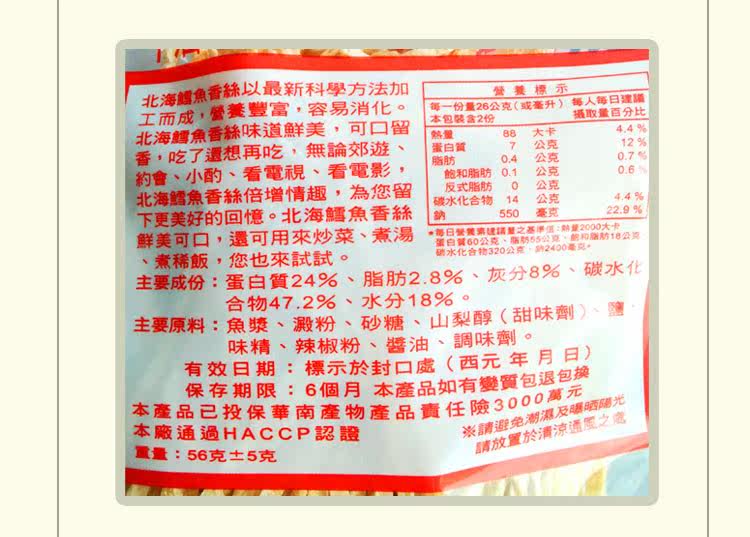 北海鱈魚香絲以最新科學方法加
工而成，營養豐富，容易消化。
北海鱈魚香絲味道鮮美，可口留
香，吃了還想再吃，無論郊遊、
約會、小酌、看電視、看電影，
北海鱈魚香絲倍增情趣，為您留
下更美好的回憶。北海鱈魚香絲
鮮美可口，還可用來炒菜、煮湯
、煮稀飯，您也來試試。
營養標示
每一份量26公克(或毫升) 每人每日建議
本包裝含2份 攝取量百分比
熱量 88 大卡 4.4 %
蛋白質 7 公克 12 %
脂肪 0.4 公克 0.7 %
飽和脂肪 0.1 公克 0.6 %
反式脂肪 0 公克
碳水化合物 14 公克 4.4 %
鈉 550 毫克 22.9 %
*每日營養素建議量之基準值:熱量2000大卡
蛋白質60公克、脂肪55公克、飽和脂肪18公克
碳水化合物320公克、鈉2400毫克。
主要成份：蛋白質24%、脂肪2.8%、灰分8%、碳水化
合物47.2%、水分18%。
主要原料：魚漿、澱粉、砂糖、山梨醇（甜味劑）、鹽、
味精、辣椒粉、醬油、調味劑。
有效日期：標示於封口處（西元年月日）
保存期限：6個月 本產品如有變質包退包換
本產品已投保華南產物產品責任險3000萬元
本廠通過HACCP認證
重量：56克±5克
※請避免潮濕及曝晒陽光
請放置於清涼通風之處